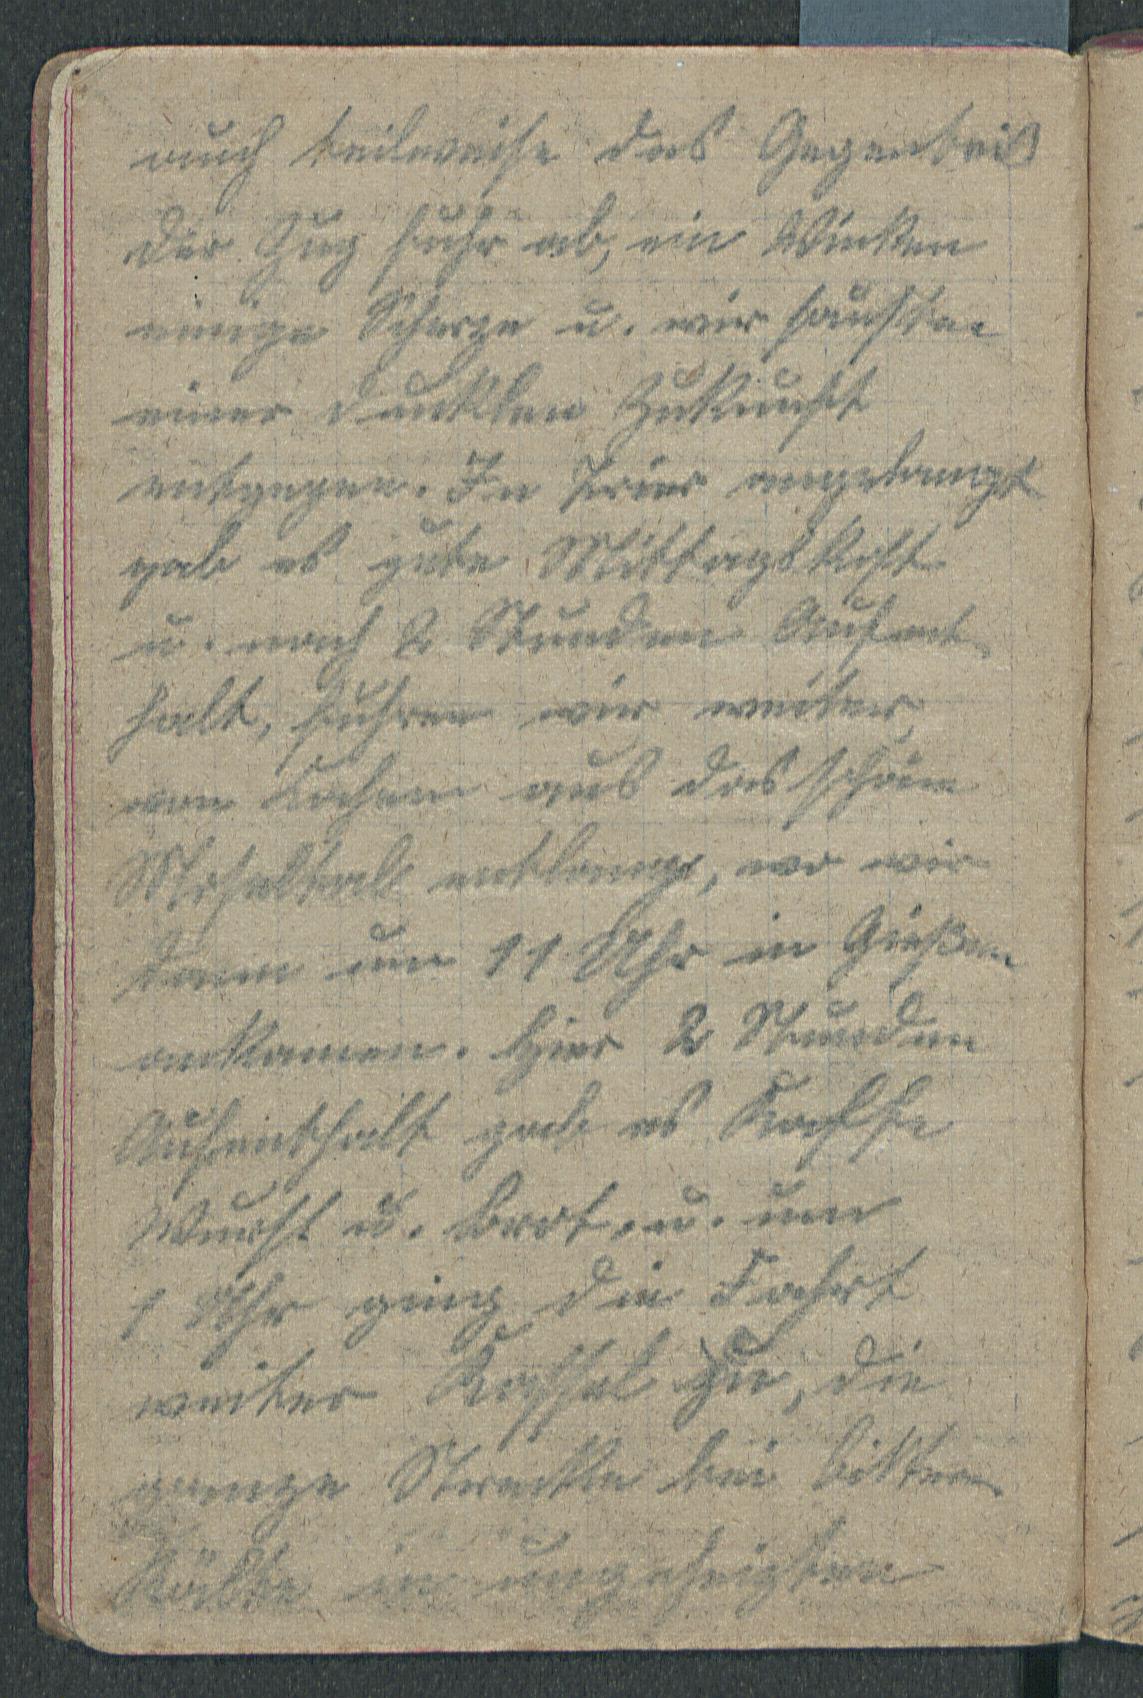 auch teilweise das Gegenteil
der Zug fuhr ab, ein Winken
einige Scherze u. wir sausten
einer dunklen Zukunft
entgegen. In Trier angelangt
gab es gute Mittagskost
u. nach 2 Stunden Aufent
halt, fuhren wir weiter,
von Kochem aus das schöne
Moseltal entlang, wo wir
dann um 11 Uhr in Gießen
ankamen. Hier 2 Stunden
Aufenthalt gab es Kaffe
Wurst u. Brot, u. um
1 Uhr ging die Fahrt
weiter Kassel zu, die
ganze Strecke bei bitterer
Kälte in ungeheizten